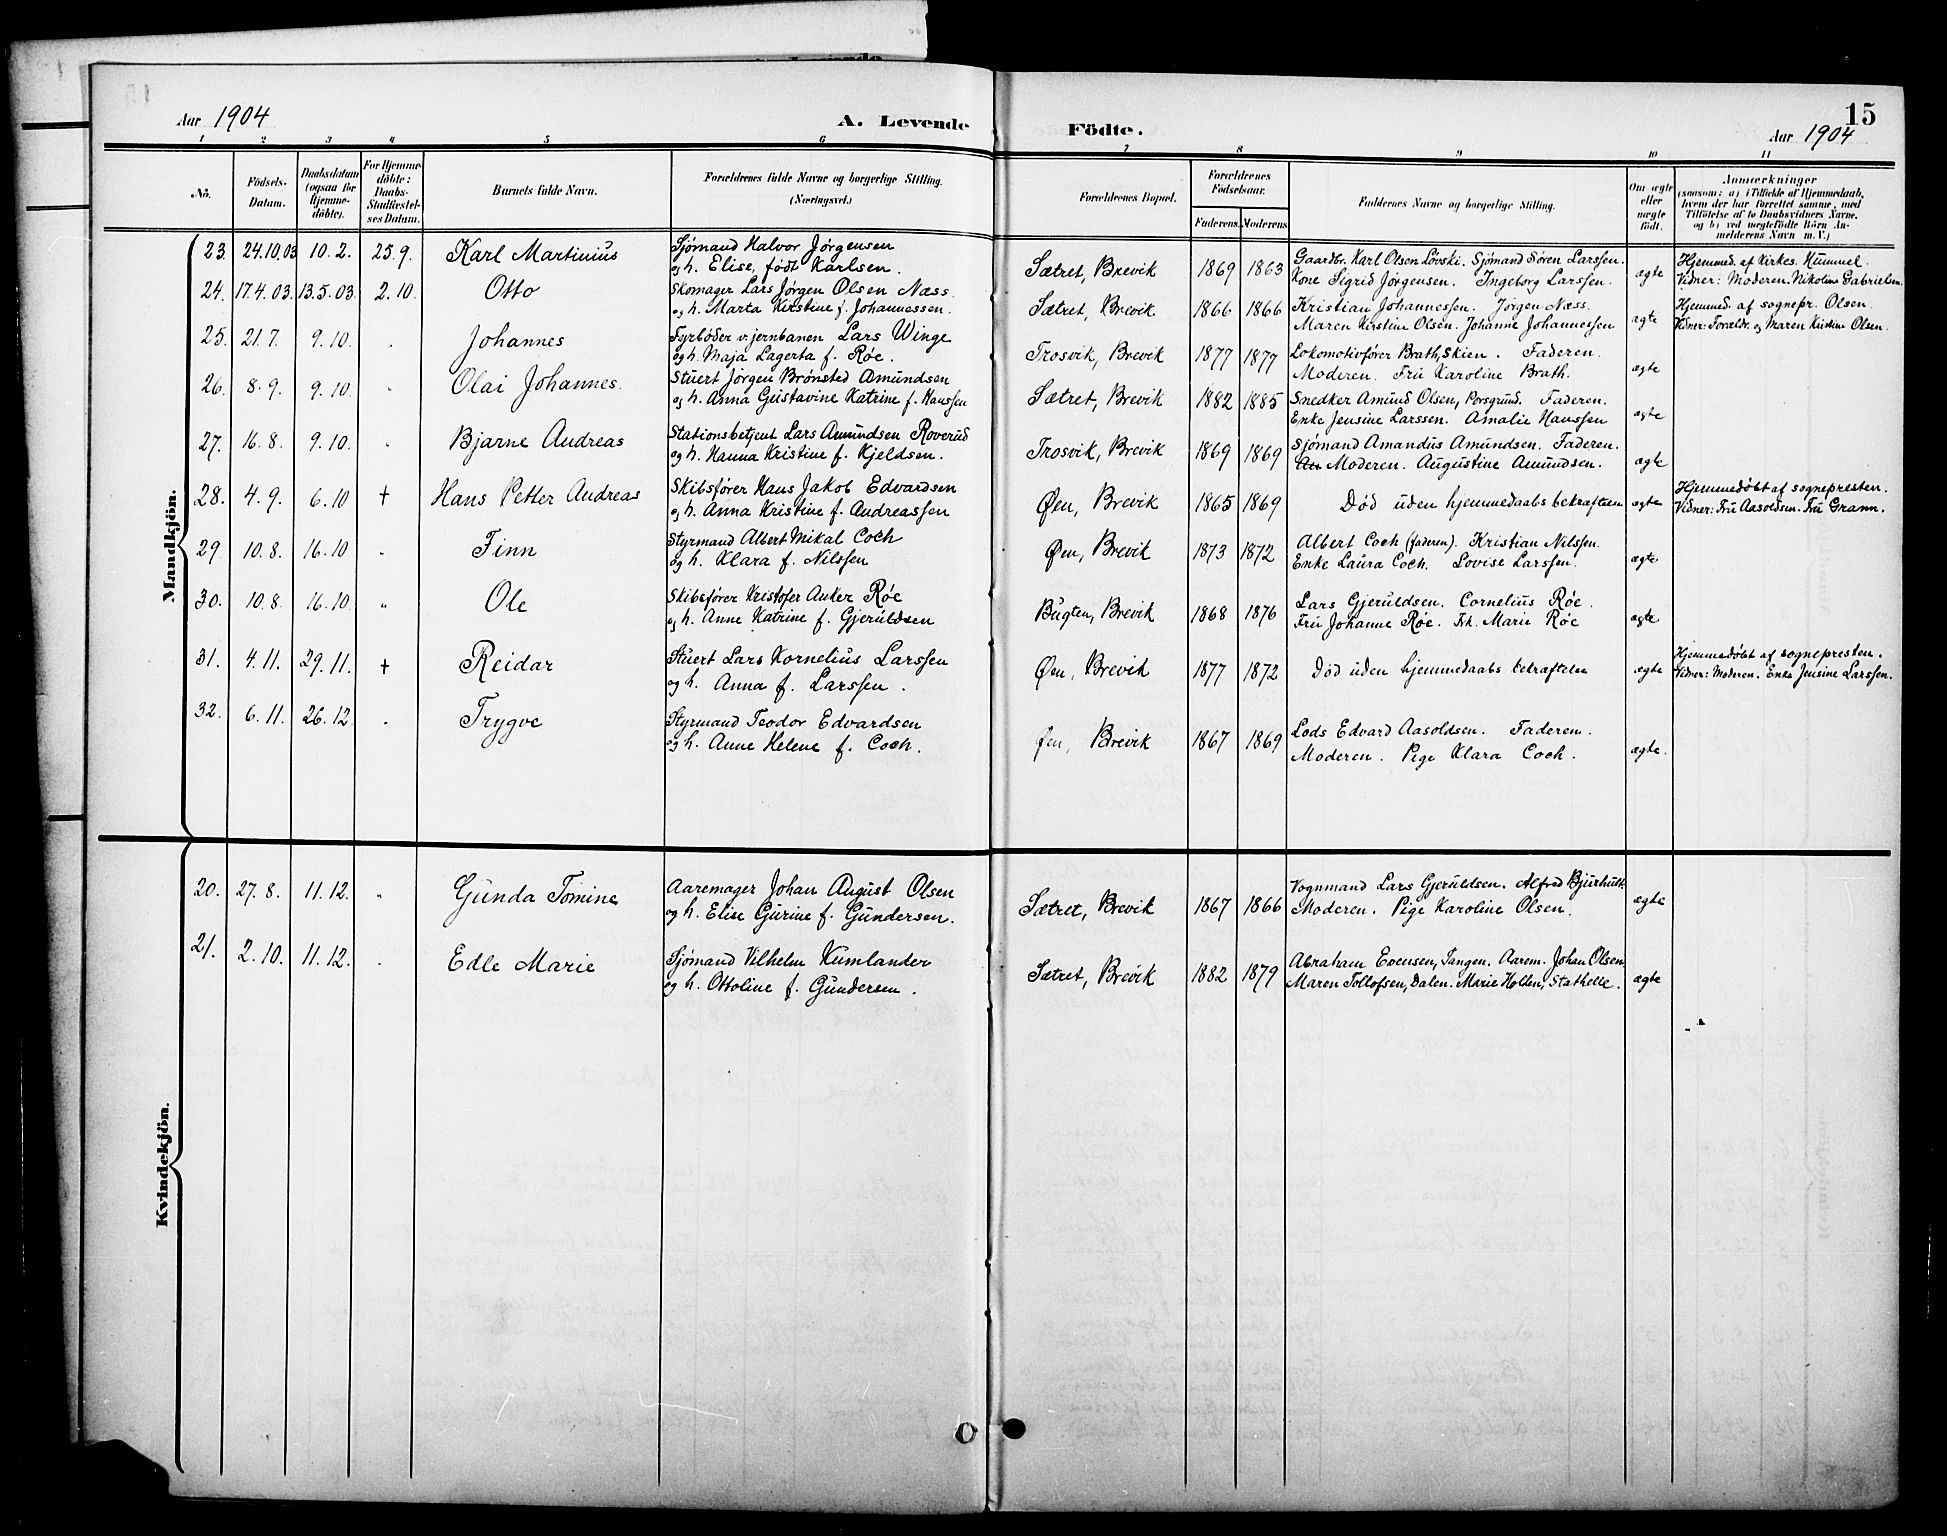 15
Aar 1904
A. Levende Födte.
Aar 1904
1 2 3 4 5 6 7 8 9 10 11
No.
Födsels-
Datum.
Daabsdatum
(ogsaa for
Hjemme-
döbte).
For Hjemme-
döbte:
Daabs-
Stadfæstel-
ses Datum.
Barnets fulde Navn.
Forældrenes fulde Navne og borgerlige Stilling.
(Næringsvei.)
Forældrenes Bopæl.
Forældrenes
Födselsaar.
Faderens. Moderens.
Faddernes Navne og borgerlige Stilling.
Om ægte
eller
uægte
født.
Anmærkninger
(saasom: a) i Tilfælde af Hjemmedaab,
hvem der har forrettet samme, med
Tilføielse af to Daabsvidners Navne,
og b) ved uegtefödte Börn An-
melderens Navn m. V.)
Mandkjön.
23. 24.10.03 10.2. 25.9. Karl Martinius Sjømand Halvor Jørgensen
og h. Elise, født Karlsen. Sætret, Brevik 1869 1863 Gaardbr. Karl Olsen Løvski. Sjømand Sören Larssen.
Kone Sigrid Jørgensen. Ingeborg Larssen. ægte Hjemmed. af Kirkes. Hummel.
Vidner: Moderen. Nikoline Gabrielsen.
24. 17.4.03. 13.5.03. 2.10. Otto Skomager Lars Jørgen Olsen Næss.
og h. Marta Kirstine f. Johannessen. Sætret, Brevik 1866 1866 Kristian Johannessen. Jörgen Næss.
Maren Kirstine Olsen. Johanne Johannessen ægte Hjemmed. af sognepr. Olsen.
Vidner: Foræld. og Maren Kirstine Olsen.
25. 21.7. 9.10. " Johannes Fyrbøder v. jernbanen Lars Winge
og h. Maja Lagerta f. Røe. Trosvik, Brevik 1877 1877 Lokomotivfører Brath, Skien. Faderen.
Moderen. Fru Karoline Brath. ægte
26. 8.9. 9.10. " Olai Johannes. Stuert Jörgen Brønsted Amundsen
og h. Anna Gustavine Katrine f. Hanssen Sætret, Brevik 1882 1885 Snedker Amund Olsen, Porsgrund. Faderen.
Enke Jensine Larssen. Amalie Hanssen ægte
27. 16.8. 9.10. " Bjarne Andreas Stationsbetjent Lars Amundsen Roverud
og h. Hanna Kristine f. Kjeldsen. Trosvik, Brevik 1869 1869 Sjømand Amandus Amundsen. Faderen.
Au Moderen. Augustine Amundsen. ægte
28. 4.9. 6.10 + Hans Petter Andreas Skibsfører Hans Jakob Edvardsen
og h. Anna Kristine f. Andreassen Øen, Brevik 1865 1869 Död uden hjemmedaabs bekræftelse ægte Hjemmedøbt af sognepresten.
Vidner: Fru Aasoldsen. Fru Grann.
29. 10.8. 16.10 " Finn Styrmand Albert Mikal Coch
og h. Klara f. Nilssen Øen, Brevik 1873 1872 Albert Coch (faderen). Kristian Nilssen.
Enke Laura Coch. Lovise Larssen. ægte
30. 10.8. 16.10. " Ole Skibsfører Kristofer Anker Røe
og h. Anne Katrine f. Gjeruldsen Bugten, Brevik 1868 1876 Lars Gjeruldsen. Cornelius Røe.
Fru Johanne Røe. Frk. Marie Røe ægte
31. 4.11. 29.11. + Reidar Stuert Lars Kornelius Larssen
og h. Anna f. Larssen. Øen, Brevik 1877 1872 Död uden hjemmedaabs bekræftelse ægte Hjemmedøbt af sognepresten.
Vidner: Moderen. Enke Jensine Larssen.
32. 6.11. 26.12. " Trygve Styrmand Teodor Edvardsen
og h. Anne Helene f. Coch. Øen, Brevik 1867 1869 Lods Edvard Aasoldsen. Faderen.
Moderen. Pige Klara Coch. ægte.
Kvindekjön.
20. 27.8. 11.12. " Gunda Tomine Aaremager Johan August Olsen
og h. Elise Gurine f. Gundersen. Sætret, Brevik 1867 1866 Vognmand Lars Gjeruldsen. Alfred Bjurhult.
Moderen. Pige Karoline Olsen. ægte
21. 2.10. 11.12. " Edle Marie Sjømand Vilhelm Kumlander
og h. Ottoline f. Gundersen. Sætret, Brevik 1882 1879 Abraham Evensen, Tangen. Aarem. Johan Olsen.
Maren Tollofsen, Dalen. Marie Holden, Stathelle. ægte